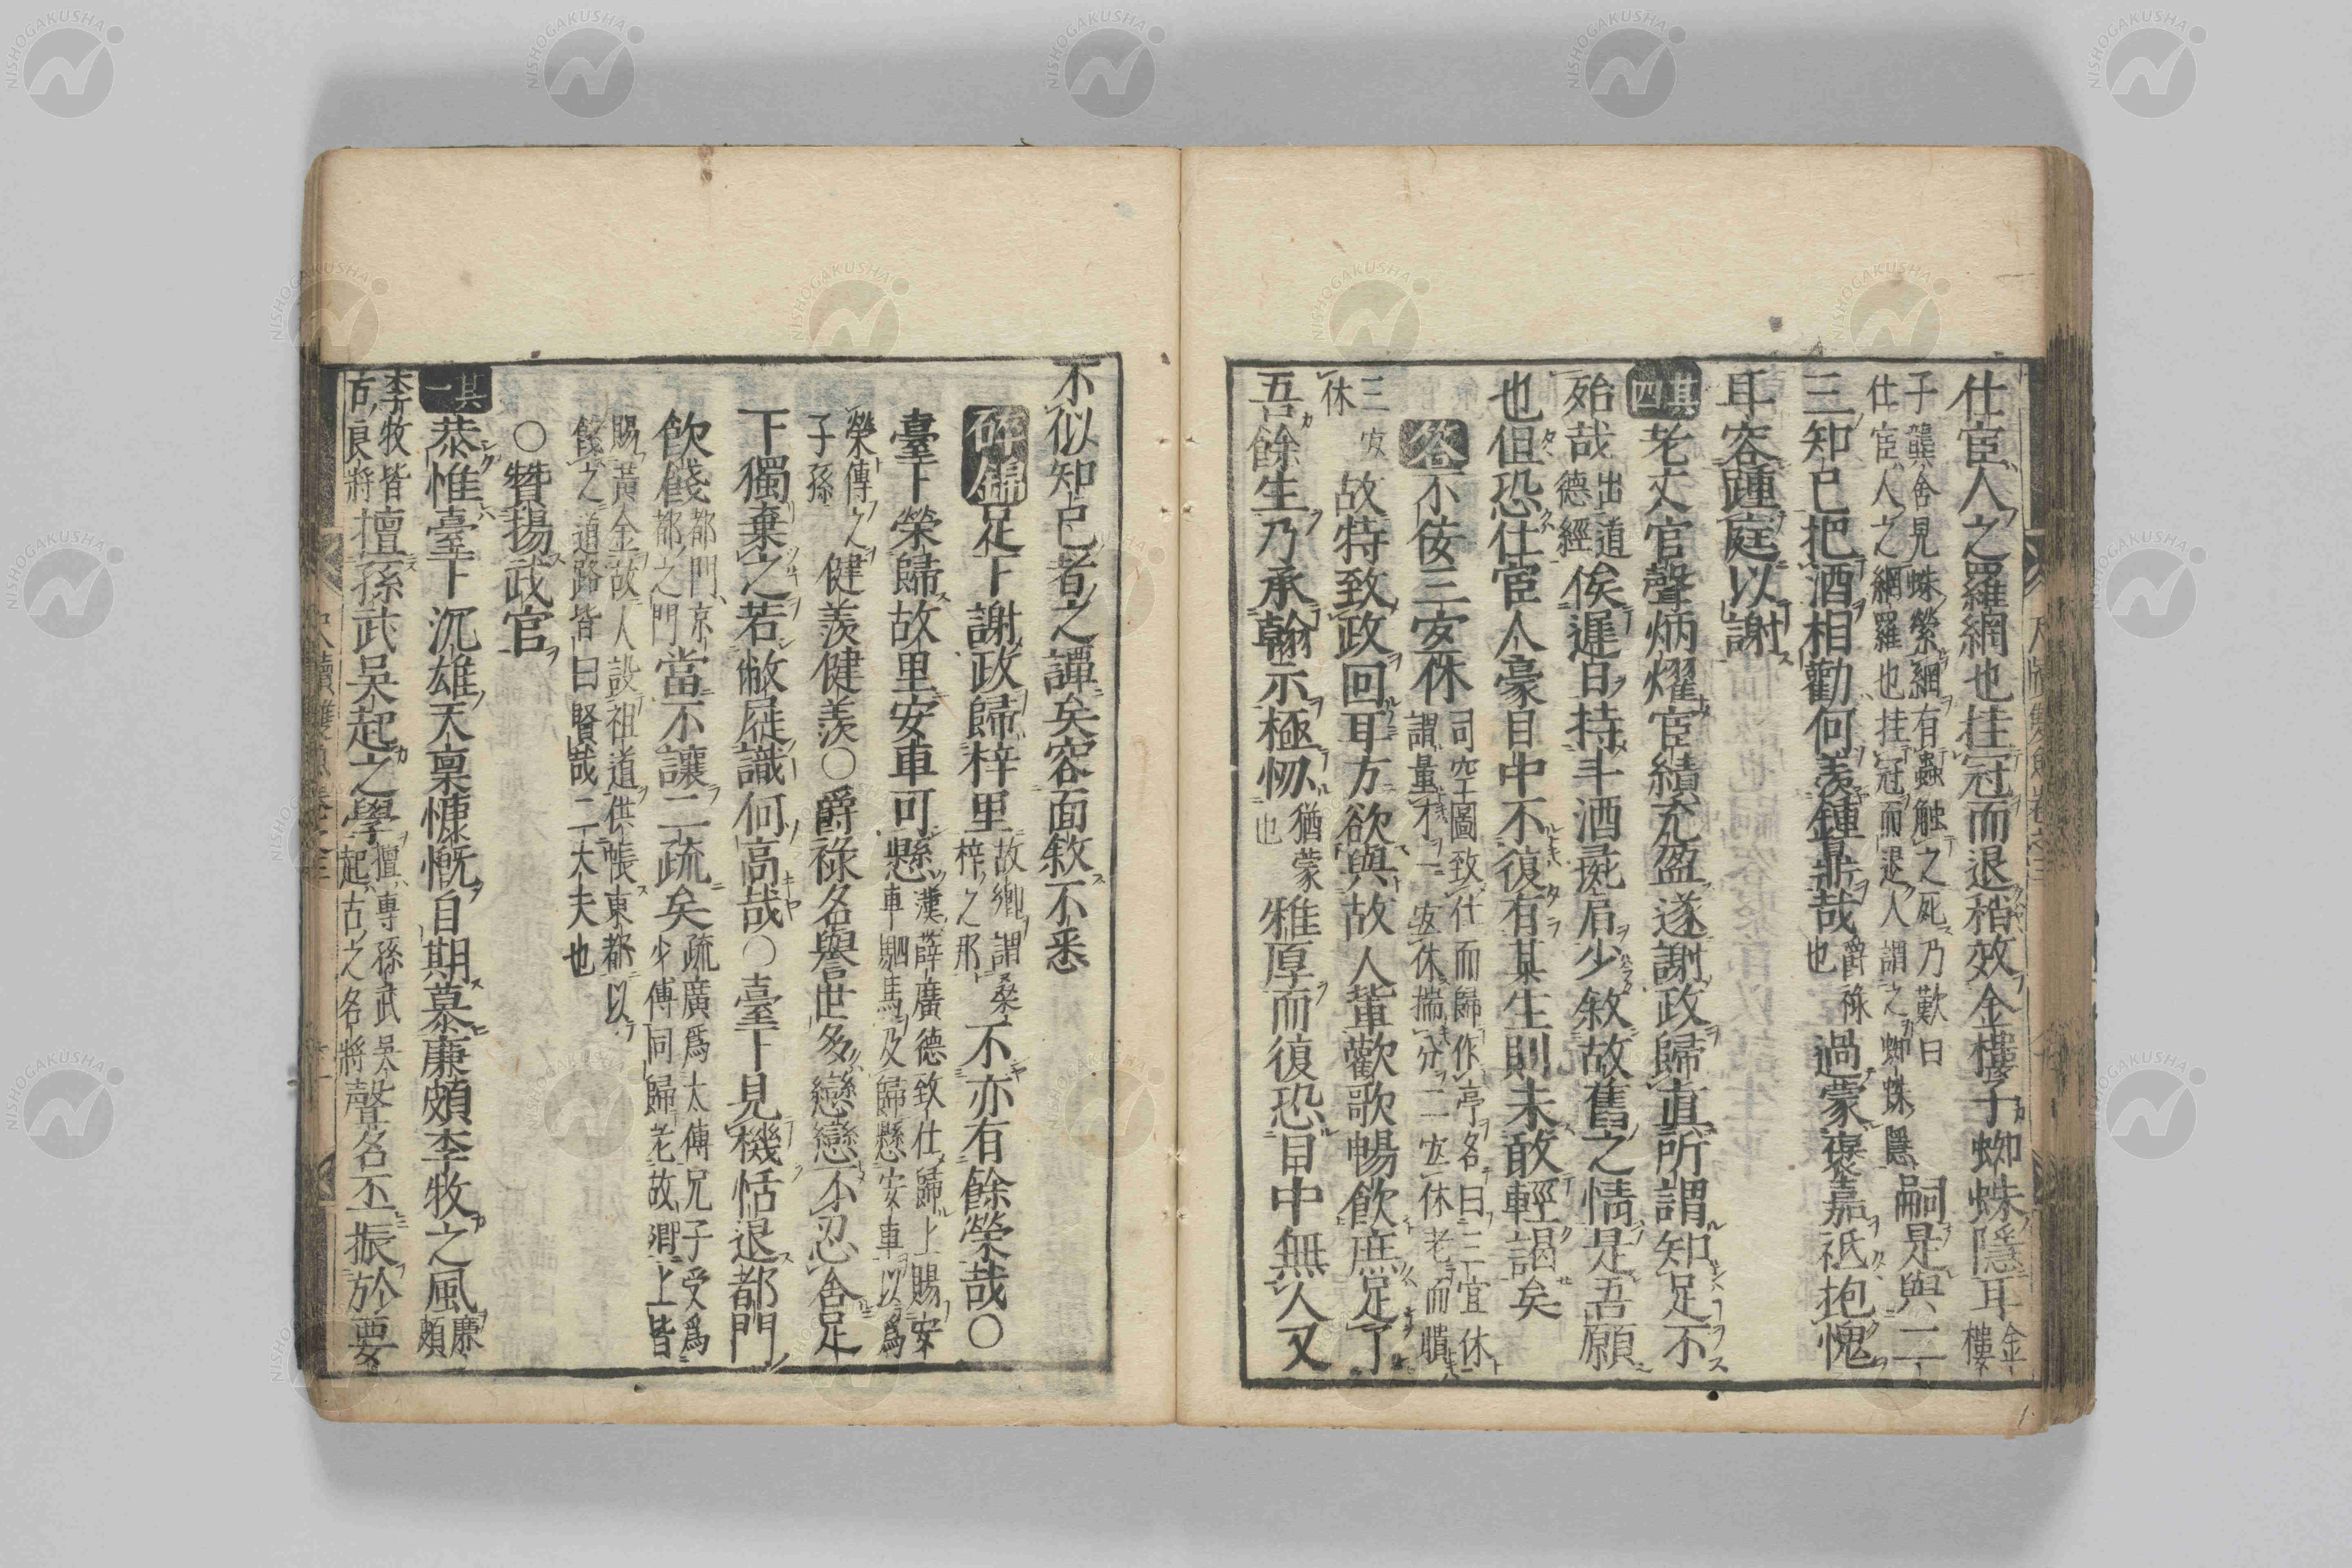 仕宦人之羅網也挂冠而退稍效金樓子蜘蛛隱耳金樓
子龔舍見蛛縈網有蟲触之死乃歎曰
仕宦人之網羅也挂冠而退人謂之蜘蛛隱
嗣是與二
三知己把酒相勸何羨鍾鼎哉爵祿也過蒙褒嘉祗抱愧
耳容踵庭以謝
其四老丈官聲炳燿宦績充盈遂謝政歸真所謂知足不
殆哉出道德經俟遲日持斗酒彘肩少敘故舊之情是吾願
也但恐仕宦人豪目中不復有某生則未敢輕謁矣
答不佞三宜休司空圖致仕而歸作亭名曰三宜休
謂量才一宜休揣分二宜休老而聵
三宜休
故特致政回耳方欲與故人輩歡歌暢飲庶足了
吾餘生乃承翰示極惣猶蒙也雅厚而復恐目中無人又
不似知己者之譚矣容面敘不悉
碎錦足下謝政歸梓里故鄉謂桑梓之邦不亦有餘榮哉○
臺下榮歸故里安車可懸漢薛廣德致仕歸上賜安
車駟馬及歸懸安車以爲
榮傳之子孫健羨健羨○爵祿名譽世多戀戀不忍舍足
下獨棄之若敝屣識何高哉○臺下見機恬退都門
飲餞都門京都之門當不讓二疏矣疏廣爲太傅兄子受爲
少傅同歸老故謂上皆
賜黃金故人設祖道供帳東都以
餞之道路皆曰賢哉二大夫也
○贊揚武官
其一恭惟臺下沉雄天稟慷慨自期慕廉頗李牧之風廉頗
李牧皆古良將擅孫武吳起之學擅專孫武吳起古之名將聲名丕振於要
尺牘雙魚卷之三